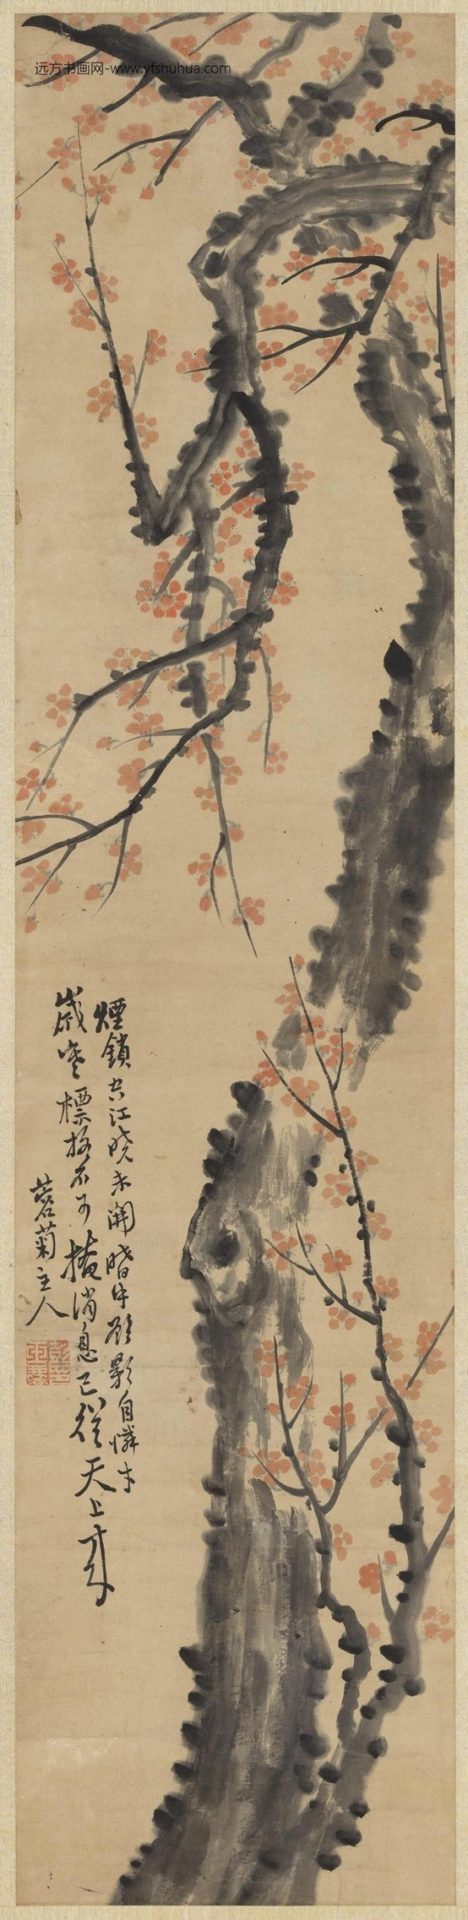 远方书画网-www.yfshuhua.com
煙鎖空江曉未開暗中顧影自憐才
歲寒標格不可掩消息已從天上來
茗菊主人